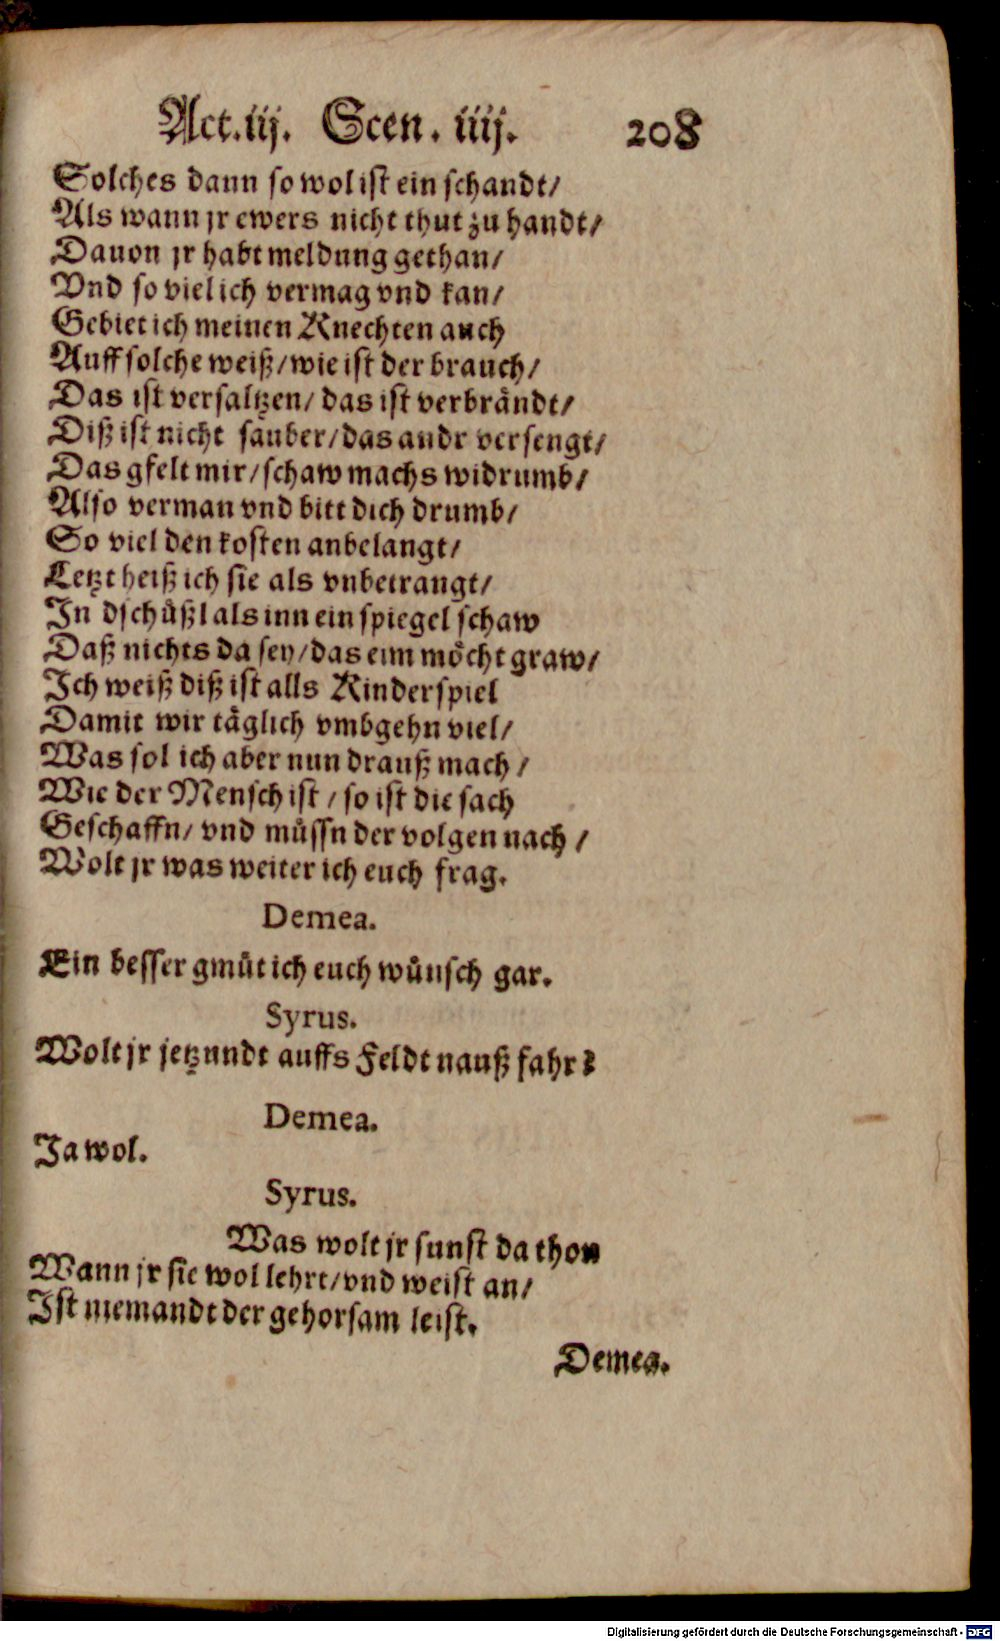 Act. iij. Scen. iiij. 208
Solches dann so wol ist ein schandt/
Als wann jr ewers nicht thut zu handt/
Dauon jr habt meldung gethan/
Vnd so viel ich vermag vnd kan/
Gebiet ich meinen Knechten auch
Auff solche weiß/ wie ist der brauch/
Das ist versaltzen/ das ist verbrändt/
Diß ist nicht sauber/ das andr versengt/
Das gfelt mir/ schaw machs widrumb/
Also verman vnd bitt dich drumb/
So viel den kosten anbelangt/
Letzt heiß ich sie als vnbetrangt/
In dschüßl als inn ein spiegel schaw
Daß nichts da sey/ das eim möcht graw/
Ich weiß diß ist alls Kinderspiel
Damit wir täglich vmbgehn viel/
Was sol ich aber nun drauß mach/
Wie der Mensch ist/ so ist die sach
Geschaffn/ vnd müssn der volgen nach/
Wolt jr was weiter ich euch frag.
Demea.
Ein besser gmüt ich euch wünsch gar.
Syrus.
Wolt jr jetzundt auffs Feldt nauß fahr?
Demea.
Ja wol.
Syrus.
Was wolt jr sunst da thon
Wann jr sie wol lehrt/ vnd weist an/
Ist niemandt der gehorsam leist.
Demea.
Digitalisierung gefördert durch die Deutsche Forschungsgemeinschaft - DFG